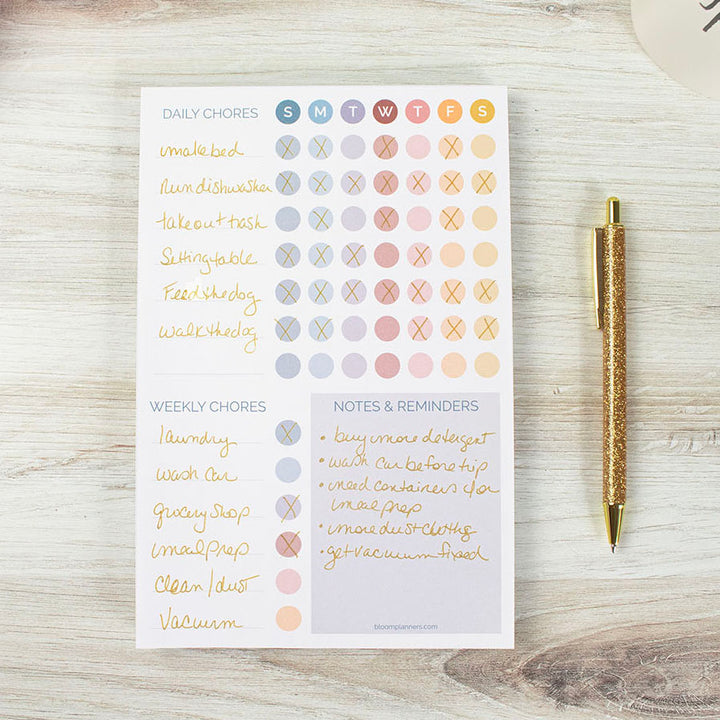 DAILY CHORES S M T W T F S
make bed
Run dishwasher
take out trash
Setting table
Feed the dog
walk the dog
WEEKLY CHORES
laundry
wash car
grocery shop
meal prep
Clean/dust
Vacuum
NOTES & REMINDERS
• buy more detergent
• wash car before trip
• need containers for
meal prep
• more dust cloths
• get vacuum fixed
bloomplanners.com